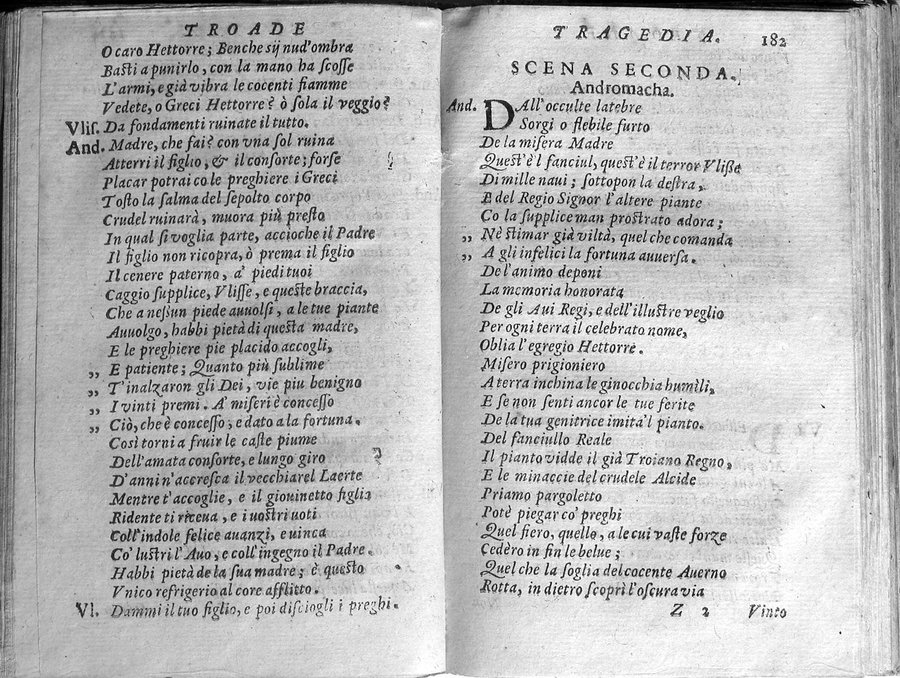 TROADE
O caro Hettorre; Benche sij nud'ombra
Basti a punirlo, con la mano ha scosse
L'armi, e già vibra le cocenti fiamme
Vedete, o Greci Hettorre? ò sola il veggio?
Vlis. Da fondamenti ruinate il tutto.
And. Madre, che fai? con vna sol ruina
Atterri il figlio, & il consorte; forse
Placar potrai co le preghiere i Greci
Tosto la salma del sepolto corpo
Crudel ruinarà, muora più presto
In qual si voglia parte, accioche il Padre
Il figlio non ricopra, ò prema il figlio
Il cenere paterno, a' piedi tuoi
Caggio supplice, Vlisse, e queste braccia,
Che a nessun piede auuolsi, a le tue piante
Auuolgo, habbi pietà di questa madre,
E le preghiere pie placido accogli,
„ E patiente; Quanto più sublime
„ T'inalzaron gli Dei, vie piu benigno
„ I vinti premi. A' miseri è concesso
„ Ciò, che è concesso, e dato a la fortuna.
Così torni a fruir le caste piume
Dell'amata consorte, e lungo giro
D'anni n'accresca il vecchiarel Laerte
Mentre t'accoglie, e il giouinetto figlio
Ridente ti riceua, e i uostri uoti
Coll'indole felice auanzi, e uinca
Co' lustri l'Auo, e coll'ingegno il Padre.
Habbi pietà de la sua madre; è questo
Vnico refrigerio al core afflitto.
Vl. Dammi il tuo figlio, e poi disciogli i preghi.
TRAGEDIA. 182
SCENA SECONDA.
Andromacha.
And. DAll'occulte latebre
Sorgi o flebile furto
De la misera Madre
Quest'è'l fanciul, quest'è il terror Vlisse
Di mille naui; sottopon la destra,
E del Regio Signor l'altere piante
Co la supplice man prostrato adora;
„ Nè stimar già viltà, quel che comanda
„ A gli infelici la fortuna auuersa.
De l'animo deponi
La memoria honorata
De gli Aui Regi, e dell'illustre veglio
Per ogni terra il celebrato nome,
Oblia l'egregio Hettorre.
Misero prigioniero
A terra inchina le ginocchia humili,
E se non senti ancor le tue ferite
De la tua genitrice imita'l pianto.
Del fanciullo Reale
Il pianto vidde il già Troiano Regno,
E le minaccie del crudele Alcide
Priamo pargoletto
Potè piegar co' preghi
Quel fiero, quello, a le cui vaste forze
Cedèro in fin le belue;
Quel che la soglia del cocente Auerno
Rotta, in dietro scoprì l'oscura via
Z 2 Vinto